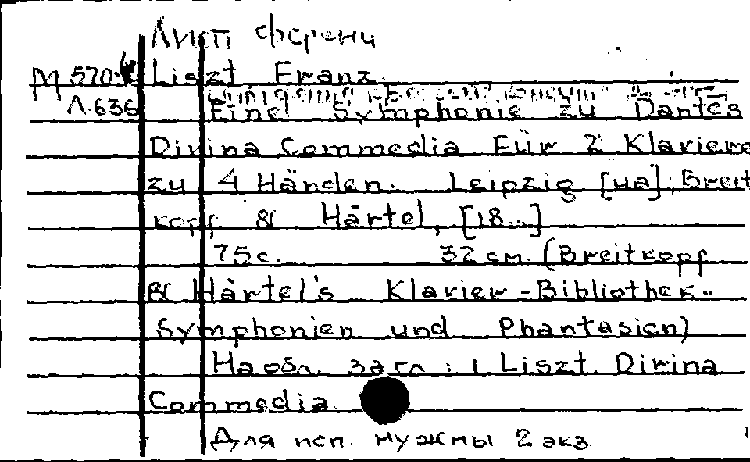 Лист Ференц
М 570.4 Liszt Franz
Л.636
Eine Symphonie zu Dantes
Divina Commedia Für 2 Klaviere
zu 4 Händen. Leipzig [u a] Breit
kopf & Härtel, [18..]
75 с. 32 см. (Breitkopf
& Härtel's Klavier-Bibliothek.-
Symphonien und Phantasien)
На обл. загл : Liszt. Divina
Commedia.
Для исп. нужны 2 экз